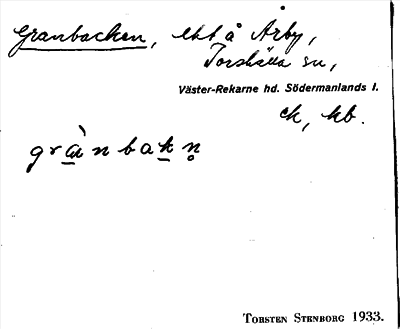 Granbacken, ebt å Årby,
Torshälla sn,
Väster-Rekarne hd. Södermanlands l.
ek, kb.
grànbakn̥
TORSTEN STENBORG 1933.